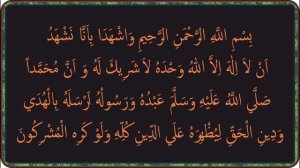 بِسْمِ اللَّهِ الرَّحْمَنِ الرَّحِيمِ وَاشْهَدَا بِاَنَّا نَشْهَدُ
اَنْ لَا اِلَهَ اِلاَّ اللَّهُ وَحْدَهُ لاَ شَرِيكَ لَهُ وَ اَنَّ مُحَمَّداً
صَلَّي اللَّهُ عَلَيْهِ وَسَلَّمَ عَبْدُهُ وَرَسُولُهُ اَرْسَلَهُ بِالْهُدَي
وَدِينِ الْحَقِّ لِيُظْهِرَهُ عَلَي الدِّينِ كُلِّهِ وَلَوْ كَرِهَ الْمُشْرِكُونَ